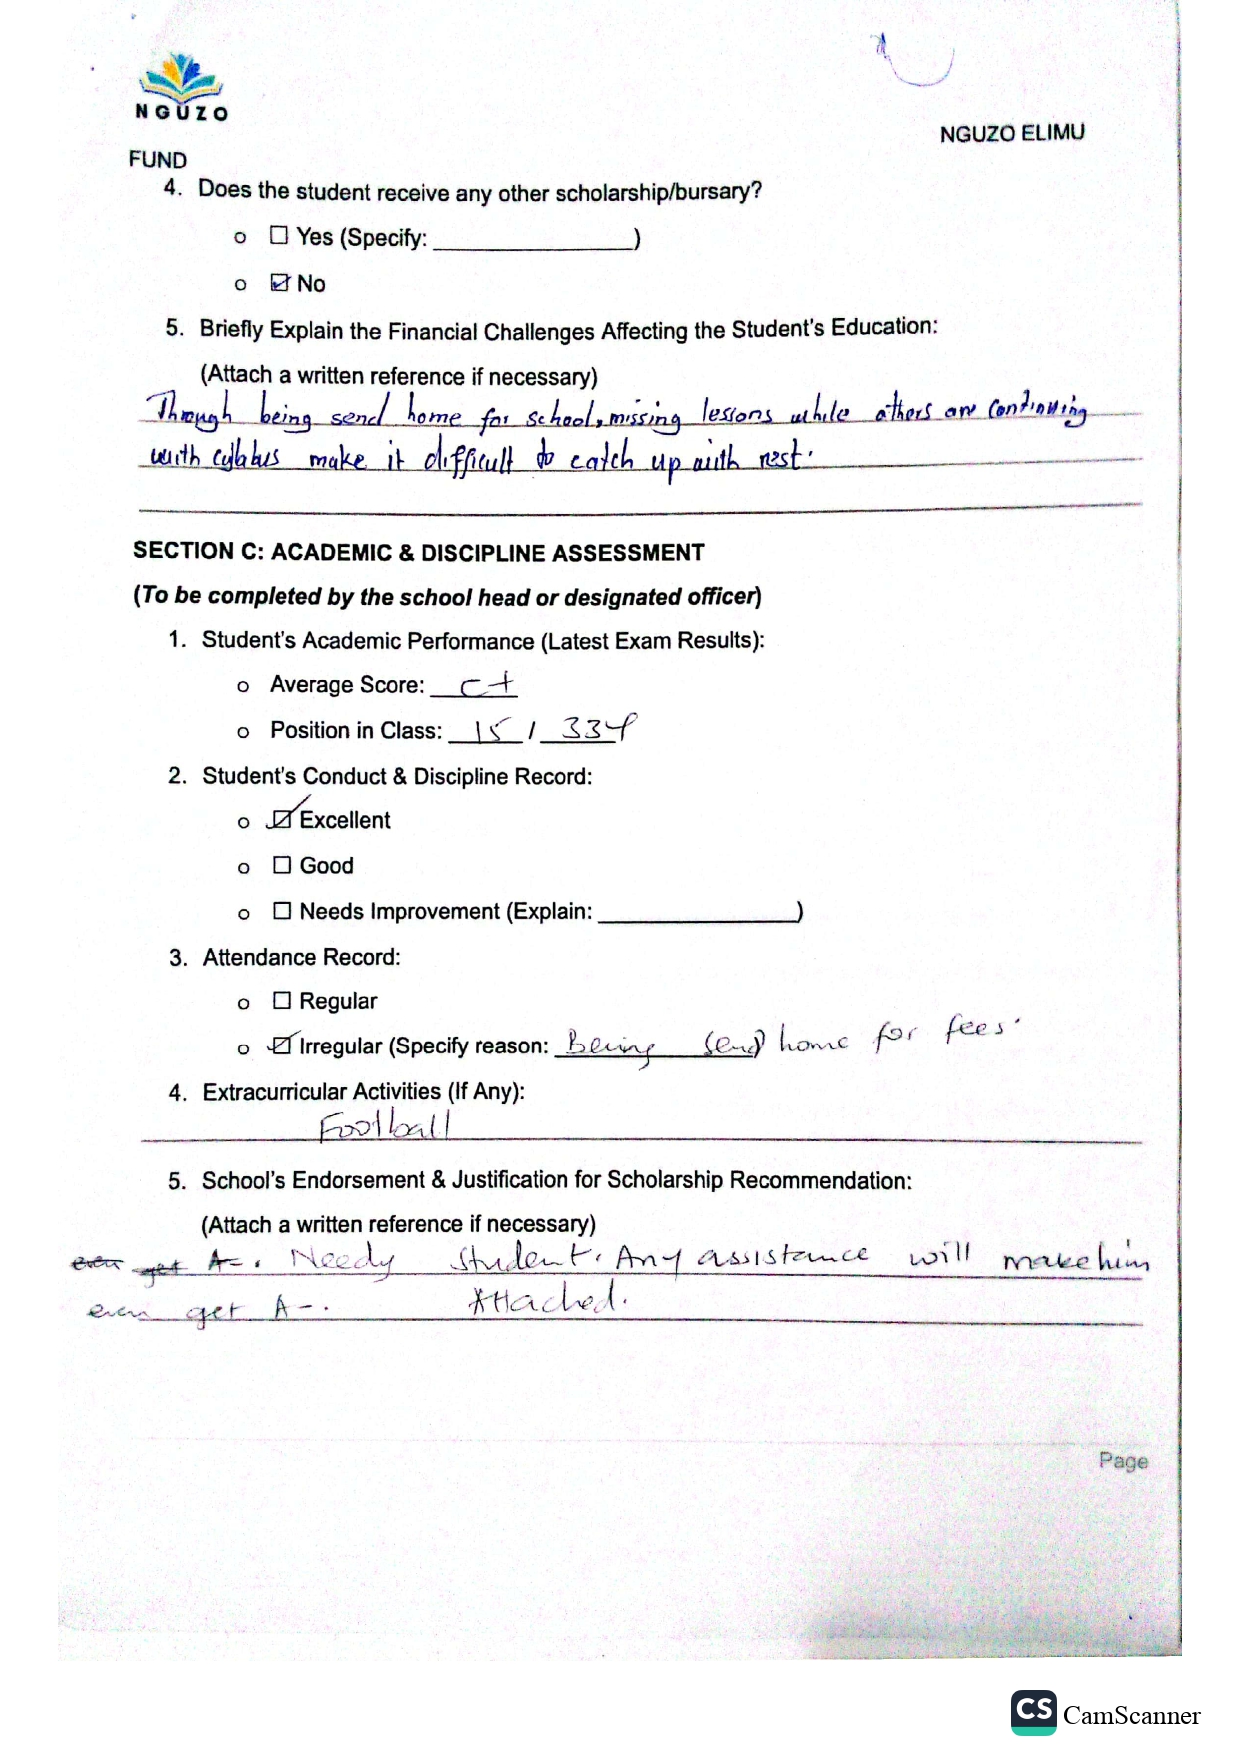 NGUZO
NGUZO ELIMU
FUND
4. Does the student receive any other scholarship/bursary?
o ☐ Yes (Specify: _______________)
o ☑ No
5. Briefly Explain the Financial Challenges Affecting the Student's Education:
(Attach a written reference if necessary)
Through being send home for school, missing lessons while others are continuing
with cyllabus make it difficult to catch up with rest.
SECTION C: ACADEMIC & DISCIPLINE ASSESSMENT
(To be completed by the school head or designated officer)
1. Student's Academic Performance (Latest Exam Results):
o Average Score: C+
o Position in Class: 15 / 334
2. Student's Conduct & Discipline Record:
o ☑ Excellent
o ☐ Good
o ☐ Needs Improvement (Explain: _______________)
3. Attendance Record:
o ☐ Regular
o ☑ Irregular (Specify reason: Being send home for fees.
4. Extracurricular Activities (If Any):
Football
5. School's Endorsement & Justification for Scholarship Recommendation:
(Attach a written reference if necessary)
even get A-. Needy Student. Any assistance will make him
even get A-. Attached.
Page
CS CamScanner